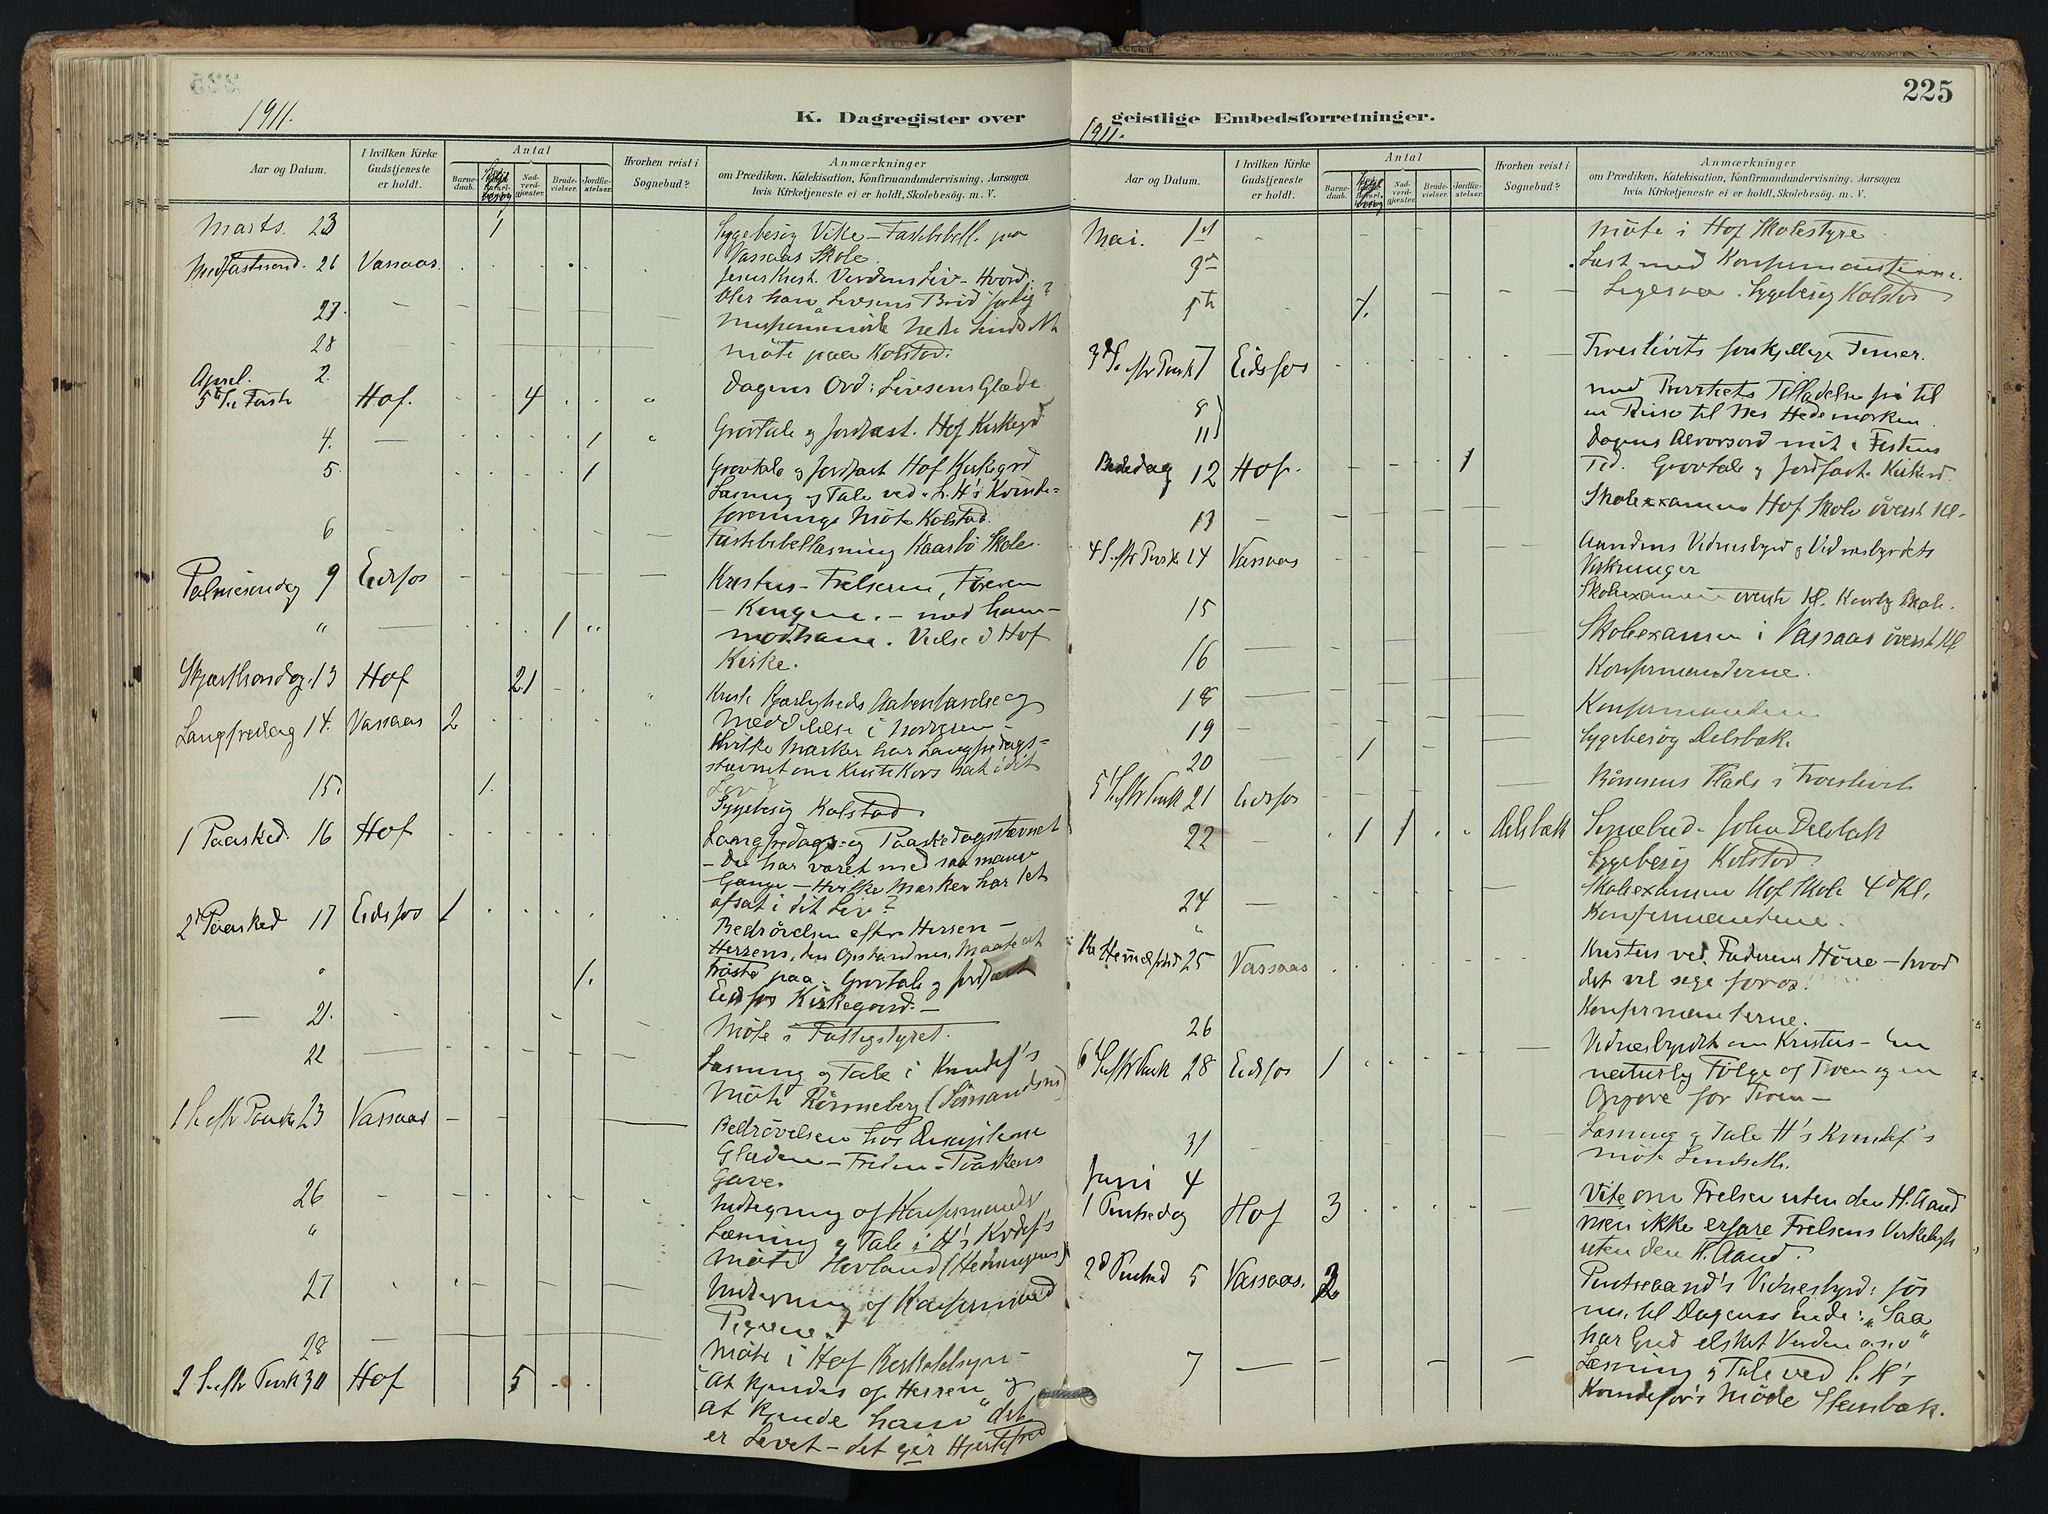 225
1911.
K. Dagregister over
geistlige Embedsforretninger.
1911.
Aar og Datum.
I hvilken Kirke Gudstjeneste er holdt.
Antal
Barnedaab.
Nadverdgjester.
Brudevielser.
Jordfæstelser.
Hvorhen reist i Sognebud?
Anmærkninger
om Prædiken, Katekisation, Konfirmandundervisning, Aarsagen
hvis Kirketjeneste ei er holdt, Skolebesøg. m. V.
Marts. 23 1 Sygebesøg Vike - Fastebibell. paa
Vassaas Skole.
Midfastesønd. 26 Vassaas. Jesus Krist. Verdens Liv - Hvord:
blev han "Livsens Brød" for dig?
27
28 Møte paa Kolstad.
April. 2.
5te S. i Faste Hof. 4 Dagens Ord: Livsens Glæde.
4. 1 Gravtale og Jordfæst. Hof Kirkegrd
5 1 Gravtale og Jordfæst Hof Kirkegrd
Læsning og Tale ved L. H's Kvinde-
forenings Møte Kolstad.
6 Fastebibellæsning Kaarbø Skole.
Palmesøndag 9 Eidsfos Kristus - Frelseren, Føreren
- Kongen. - med ham -
" 1 mod ham. Vielse i Hof
Kirke.
Skjærthorsdag. 13 Hof 21 Kristi Kjærligheds
Meddelelse i
Langfredag 14. Vassaas 2 Hvilke Mærker har Langfredags-
stævnet om Kristi Kors sat i dit
Liv?
15. 1. Sygebesøg Kolstad
1 Paasked. 16 Hof Langfredags- og Paaskedagsstævnet
- Du har været med saa mange
Gange - Hvilke Mærker har det
afsat i dit Liv?
2d Paasked 17 Eidsfos 1 Bedrøvelsen efter Herren -
Herrens, den Opstandnes, Maate at
" 1. trøste paa. Gravtale og Jordfæst
Eidsfos Kirkegaard. -
21. Møte i Fattigstyret.
22 Læsning og Tale i Kvindef's
Møte Rønneberg (Sømandsm)
1 S. eftr Paaske 23 Vassaas Bedrøvelsen hos Disciplene
Glæden - Freden - Paaskens
Gave.
26 Indtegning af Konfirmander
" Læsning og Tale i H's Kvdef's
Møte Hovland (Hedningem)
27 Indtegning af Konfirmand
Pigerne.
28 Møte i Hof Kirketilsyn -
2 S. eftr Paask 30 Hof 5 "At kjendes af Herren og
at kjende ham" det
er Livet - det gir Hjertefred
Aar og Datum.
I hvilken Kirke Gudstjeneste er holdt.
Antal
Barnedaab.
Nadverdgjester.
Brudevielser.
Jordfæstelser.
Hvorhen reist i Sognebud?
Anmærkninger
om Prædiken, Katekisation, Konfirmandundervisning, Aarsagen
hvis Kirketjeneste ei er holdt, Skolebesøg. m. V.
Mai. 1st Møte i Hof Skolestyre.
3die Læst med Konfirmanterne.
5te 1. Ligesaa. Sygebesøg Kolstad
3d S. eftr Paask 7 Eidsfos Troeslivets forskjellige Timer.
8 med Provstiets Tilladelse fri til
11 en Reise til Nes Hedemarken.
Bededag 12 Hof. 1 Dagens Alvorsord mit i Festens
Tid. Gravtale og Jordfæst. Kirkegrd.
13 Skoleexamen Hof Skole øverst Kl.
4 S. eftr Paask 14 Vassaas Aandens Vidnesbyrd og Vidnesbyrdets
Virkninger
15 Skoleexamen øverste Kl. Skole.
16 Skoleexamen i Vassaas øverst Kl
18 Konfirmanderne.
19 Konfirmanden
20 1 Sygebesøg Delsbæk.
5 S. eftr Paask 21 Eidsfos Bønnens Plads i Troeslivet
22 1 1 Delsbæk Sognebud - Johan Delsbæk
Sygebesøg Kolstad.
24 Skoleexamen Hof Skole 4d Kl.
Konfirmanterne.
Kr. Himmelf.d 25 Vassaas Kristus ved Faderens Høire - hvad
det vil sige for os.
26 Konfirmanterne.
6 S. eftr Paask 28 Eidsfos 1 Vidnesbyrdet om Kristus - En
naturlig Følge af Troen og en
Opgave for Troen -
31 Læsning og Tale H's Kvindef's
Møte Lindseth.
Juni 4
1 Pintsedag Hof 3 Vite om Frelsen uten den H. Aand
men ikke erfare Frelsens Virkelighed
uten den H. Aand.
2d Pintsed 5 Vassaas. 2 Pintseaand's Vidnesbyrd: før
nu, til Dagenes Ende: "Saa
har Gud elsket Verden o.s.v"
7 Læsning og Tale ved
Kvindefor's Møde Stensbæk.